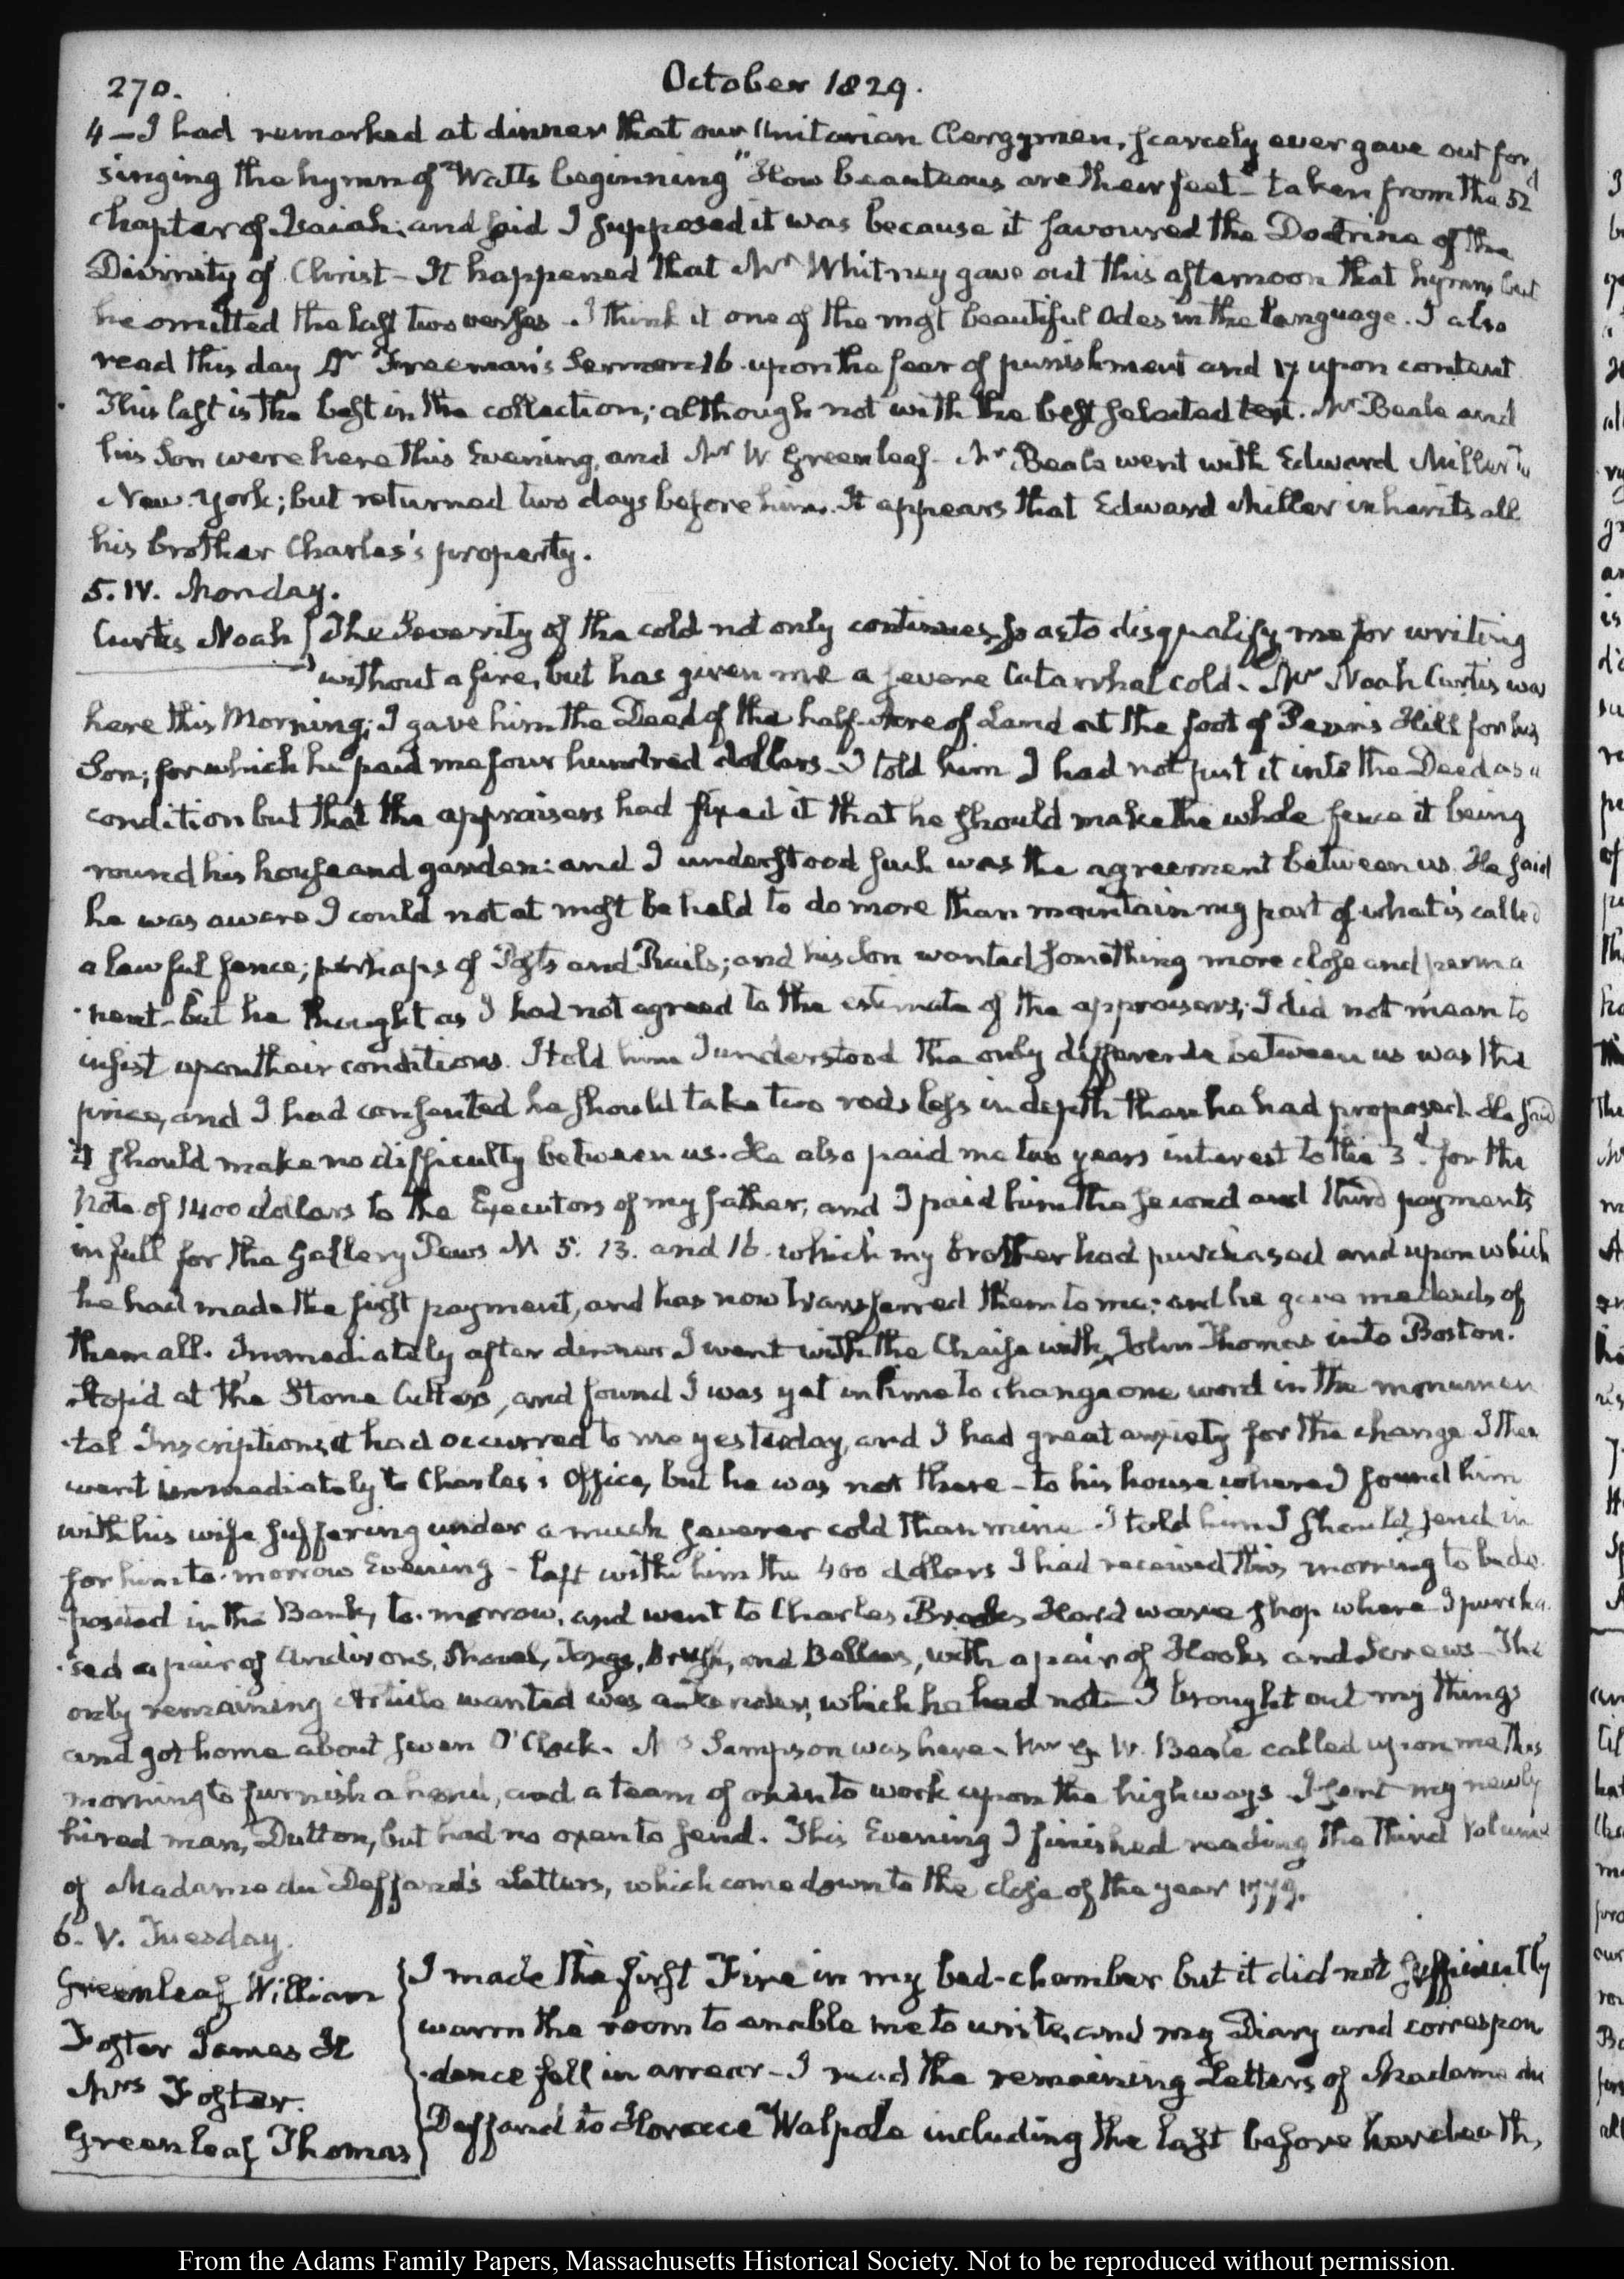 270.
October 1829.
4 – I had remarked at dinner that our Unitarian Clergymen, scarcely ever gave out for
singing the hymn of Watts beginning "How beauteous are their feet" – taken from the 52d
chapter of Isaiah; and said I supposed it was because it favoured the Doctrine of the
Divinity of Christ – It happened that Mr Whitney gave out this afternoon that hymn, but
he omitted the last two verses – I think it one of the most beautiful Odes in the language. I also
read this day Dr Freeman's Sermon 16. upon the fear of punishment and 17 upon content
This last is the best in the collection; although not with the best selected text. Mr Beale and
his Son were here this Evening, and Mr W Greenleaf – Mr Beale went with Edward Miller to
New York; but returned two days before him. It appears that Edward Miller inherits all
his brother Charles's property.
5. IV. Monday.
Curtis Noah
The Severity of the cold not only continues, so as to disqualify me for writing
without a fire, but has given me a severe Catarrhal cold – Mr Noah Curtis was
here this Morning; I gave him the Deed of the half-Acre of Land at the foot of Penn's Hill for his
Son; for which he paid me four hundred dollars – I told him I had not put it into the Deed as a
condition but that the appraisers had fixed it that he should make the whole fence it being
round his house and garden: and I understood such was the agreement between us. He said
he was aware I could not at most be held to do more than maintain my part of what is called
a lawful fence; perhaps of Posts and Rails; and his Son wanted something more close and perma
nent – but he thought as I had not agreed to the estimate of the appraisers; I did not mean to
insist upon their conditions. I told him I understood the only difference between us was the
price, and I had consented he should take two rods less in depth than he had proposed. He said
it should make no difficulty between us. He also paid me two years interest to the 3d. for the
Note of 1400 dollars to the Executors of my father; and I paid him the second and third payments
in full for the Gallery Pews N 5. 13. and 16. which my brother had purchased and upon which
he had made the first payment, and has now transferred them to me; and he gave me deeds of
them all. Immediately after dinner I went with the Chaise with John Thomas into Boston.
Stop'd at the Stone Cutters, and found I was yet in time to change one word in the monumen
tal Inscription, it had occurred to me yesterday, and I had great anxiety for the change. I then
went immediately to Charles's Office, but he was not there – to his house where I found him
with his wife suffering under a much severer cold than mine. I told him I should send in
for him to-morrow Evening – left with him the 400 dollars I had received this morning to be de
posited in the Bank, to-morrow, and went to Charles Brooks Hard ware shop where I purcha
sed a pair of Andirons, Shovel, Tongs, Brush, and Bellows, with a pair of Hooks and Screws – The
only remaining Article wanted was a, which he had not – I brought out my things
and got home about seven O'Clock. Sampson was here – Mr G. W. Beale called upon me this
morning to furnish a hand, and a team of oxen to work upon the highways. I sent my newly
hired man, Dutton, but had no oxen to send. This Evening I finished reading the third Volume
of Madame du Deffand's Letters, which come down to the close of the year 1779.
6. V. Tuesday.
Greenleaf William
Foster James H
Mrs Foster.
Greenleaf Thomas
I made the first Fire in my bed-chamber but it did not sufficiently
warm the room to enable me to write, and my Diary and correspon
dence fell in arrear – I read the remaining Letters of Madame du
Deffand to Horace Walpole including the last before her death,
From the Adams Family Papers, Massachusetts Historical Society. Not to be reproduced without permission.